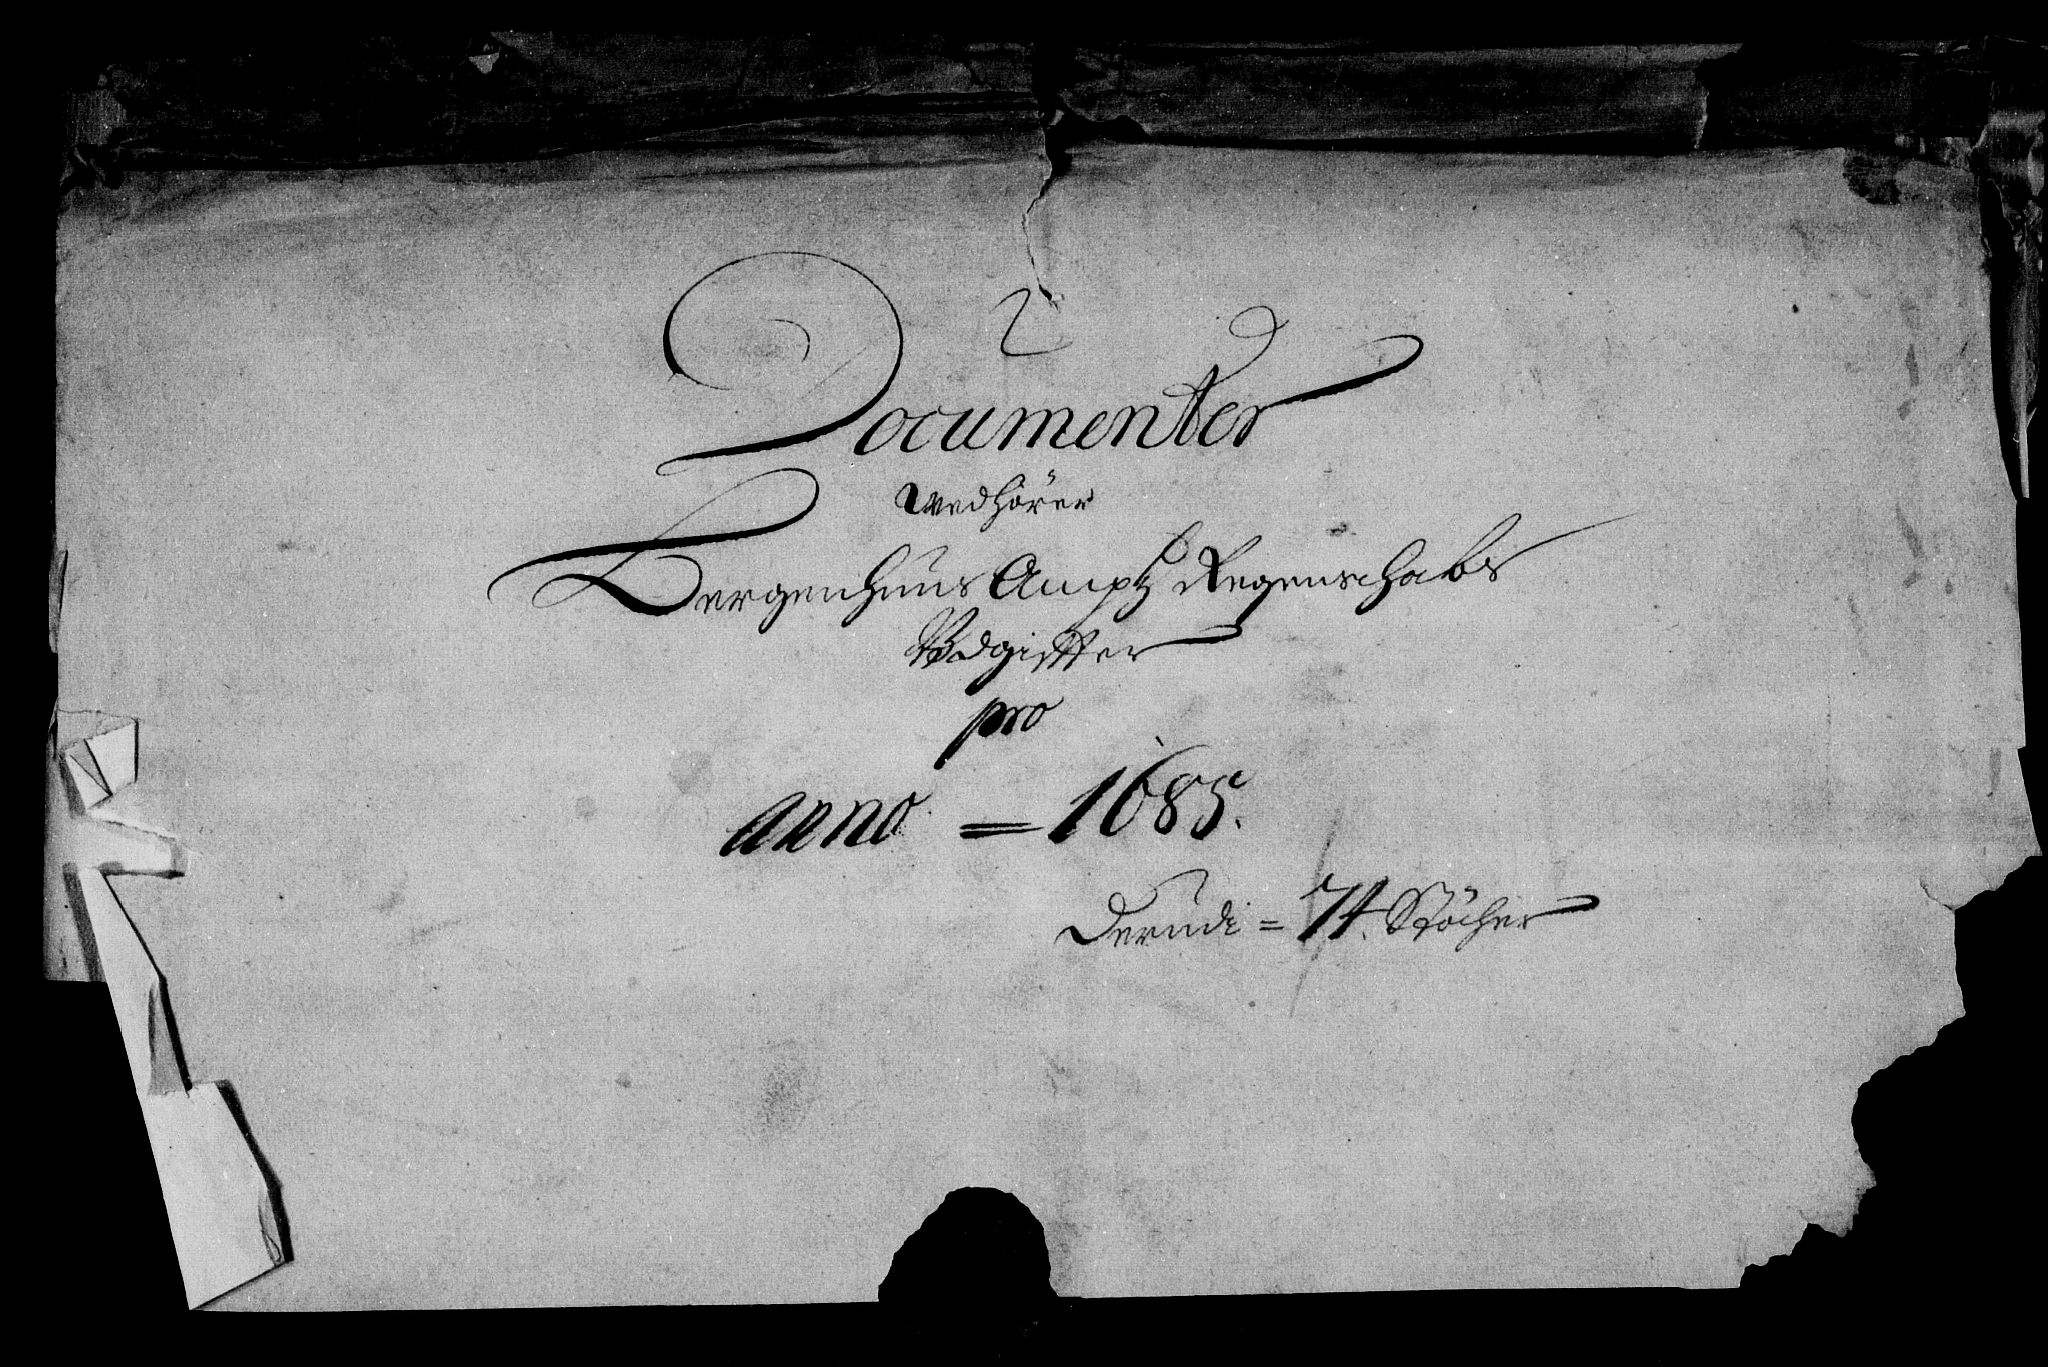 Documenter
Wedhörer
Bergenhuus Ampts Regenschabs
Udgiffter
pro
anno = 1685.
Derudi = 74. Stöcher